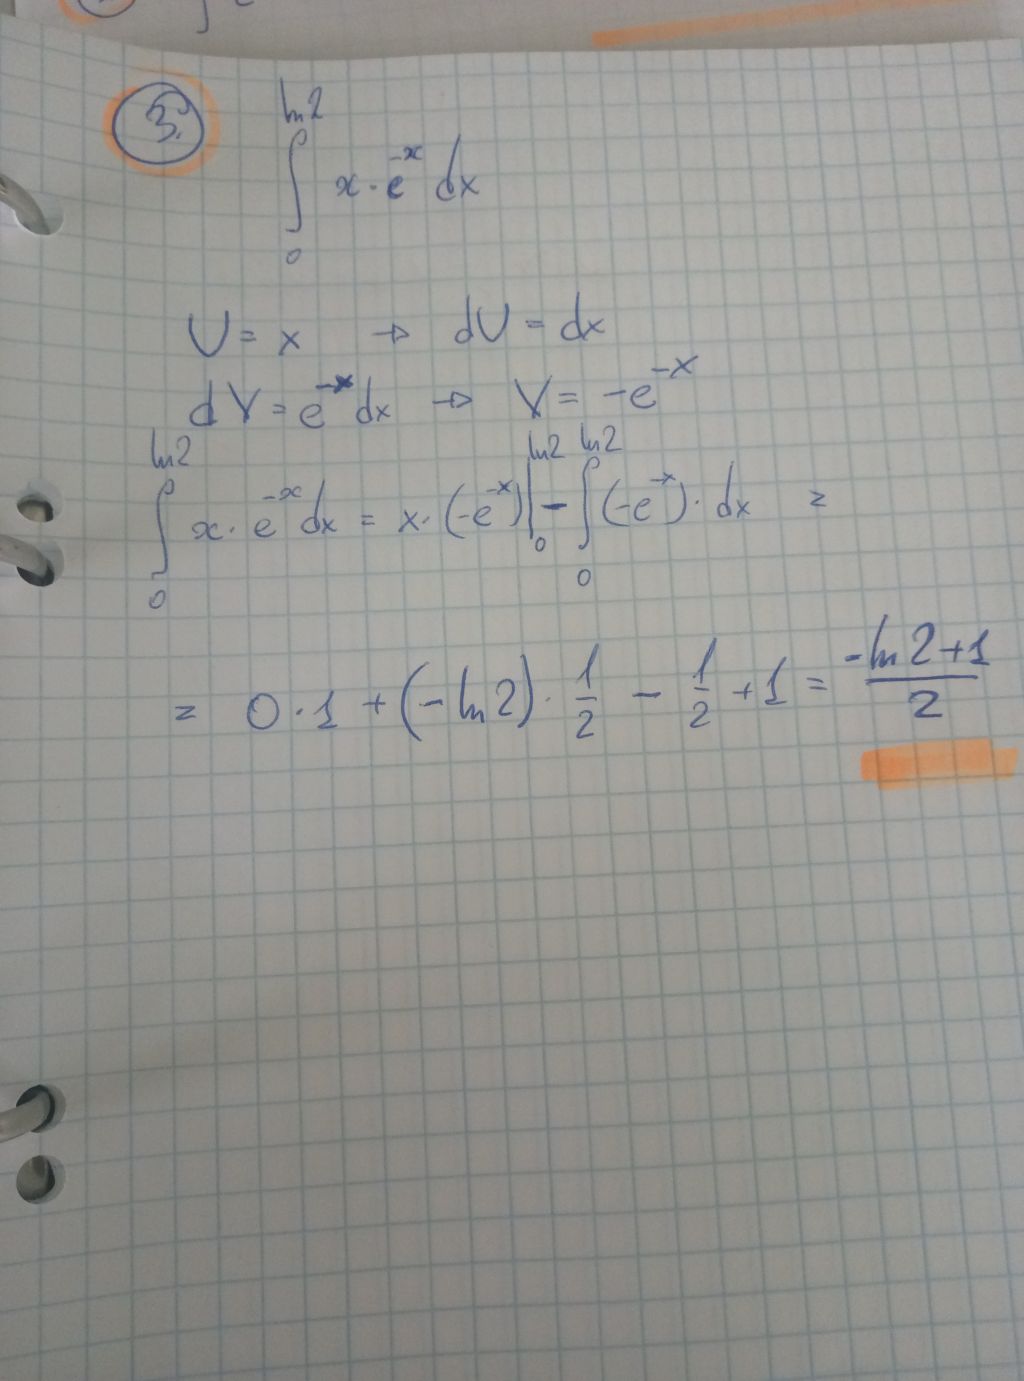 3.
∫₀^{ln2} x · e^{-x} dx
U = x → dU = dx
dV = e^{-x} dx → V = -e^{-x}
∫₀^{ln2} x · e^{-x} dx = x · (-e^{-x}) |₀^{ln2} - ∫₀^{ln2} (-e^{-x}) · dx =
= 0 · 1 + (-ln2) · 1/2 - 1/2 + 1 = (-ln2+1)/2